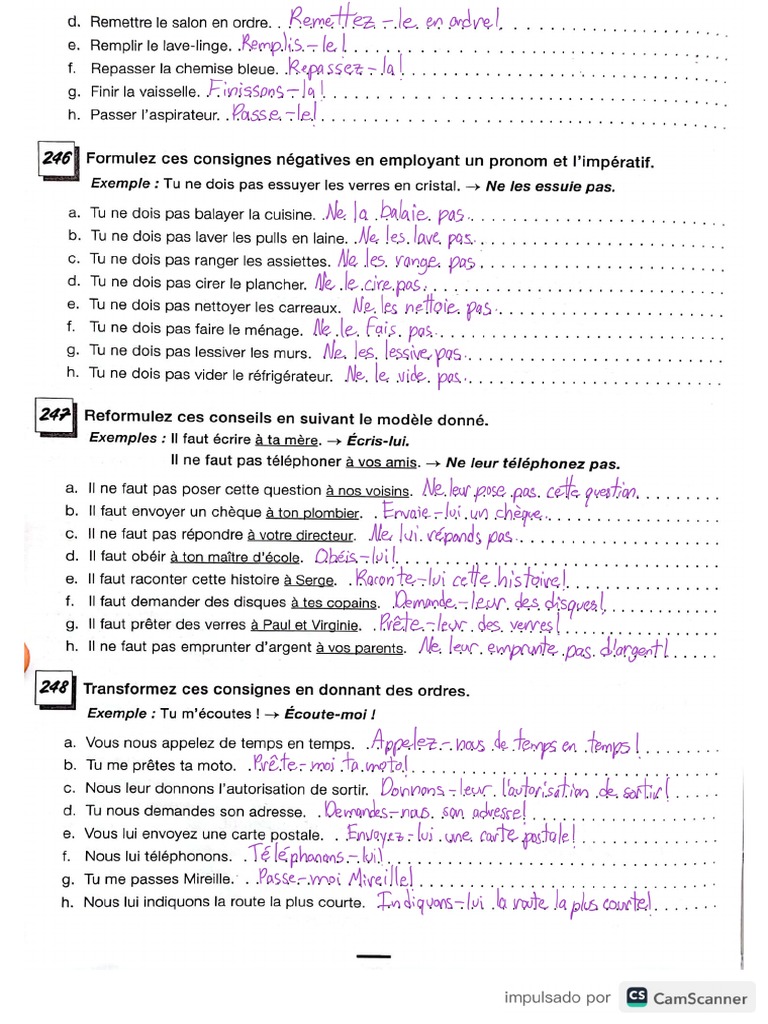 d. Remettre le salon en ordre. . Remettez-le en ordre!
e. Remplir le lave-linge. . Remplis-le!
f. Repasser la chemise bleue. . Repassez-la!
g. Finir la vaisselle. . Finissons-la!
h. Passer l'aspirateur. . Passe-le!
246 Formulez ces consignes négatives en employant un pronom et l'impératif.
Exemple : Tu ne dois pas essuyer les verres en cristal. → Ne les essuie pas.
a. Tu ne dois pas balayer la cuisine. . Ne la balaie pas.
b. Tu ne dois pas laver les pulls en laine. . Ne les lave pas.
c. Tu ne dois pas ranger les assiettes. Ne les range pas.
d. Tu ne dois pas cirer le plancher. Ne le cire pas.
e. Tu ne dois pas nettoyer les carreaux. Ne les nettoie pas.
f. Tu ne dois pas faire le ménage. Ne le fais pas.
g. Tu ne dois pas lessiver les murs. Ne les lessive pas.
h. Tu ne dois pas vider le réfrigérateur. Ne le vide pas.
247 Reformulez ces conseils en suivant le modèle donné.
Exemples : Il faut écrire à ta mère. → Écris-lui.
Il ne faut pas téléphoner à vos amis. → Ne leur téléphonez pas.
a. Il ne faut pas poser cette question à nos voisins. Ne leur pose pas cette question.
b. Il faut envoyer un chèque à ton plombier. . Envoie-lui un chèque.
c. Il ne faut pas répondre à votre directeur. Ne lui réponds pas.
d. Il faut obéir à ton maître d'école. Obéis-lui!
e. Il faut raconter cette histoire à Serge. . Raconte-lui cette histoire!
f. Il faut demander des disques à tes copains. . Demande-leur des disques!
g. Il faut prêter des verres à Paul et Virginie. . Prête-leur des verres!
h. Il ne faut pas emprunter d'argent à vos parents. . Ne leur emprunte pas d'argent!
248 Transformez ces consignes en donnant des ordres.
Exemple : Tu m'écoutes ! → Écoute-moi !
a. Vous nous appelez de temps en temps. . Appelez-nous de temps en temps!
b. Tu me prêtes ta moto. . Prête-moi ta moto!
c. Nous leur donnons l'autorisation de sortir. Donnons-leur l'autorisation de sortir!
d. Tu nous demandes son adresse. . Demandes-nous son adresse!
e. Vous lui envoyez une carte postale. . Envoyez-lui une carte postale!
f. Nous lui téléphonons. . Téléphonons-lui!
g. Tu me passes Mireille. . Passe-moi Mireille!
h. Nous lui indiquons la route la plus courte. Indiquons-lui la route la plus courte!
impulsado por CS CamScanner